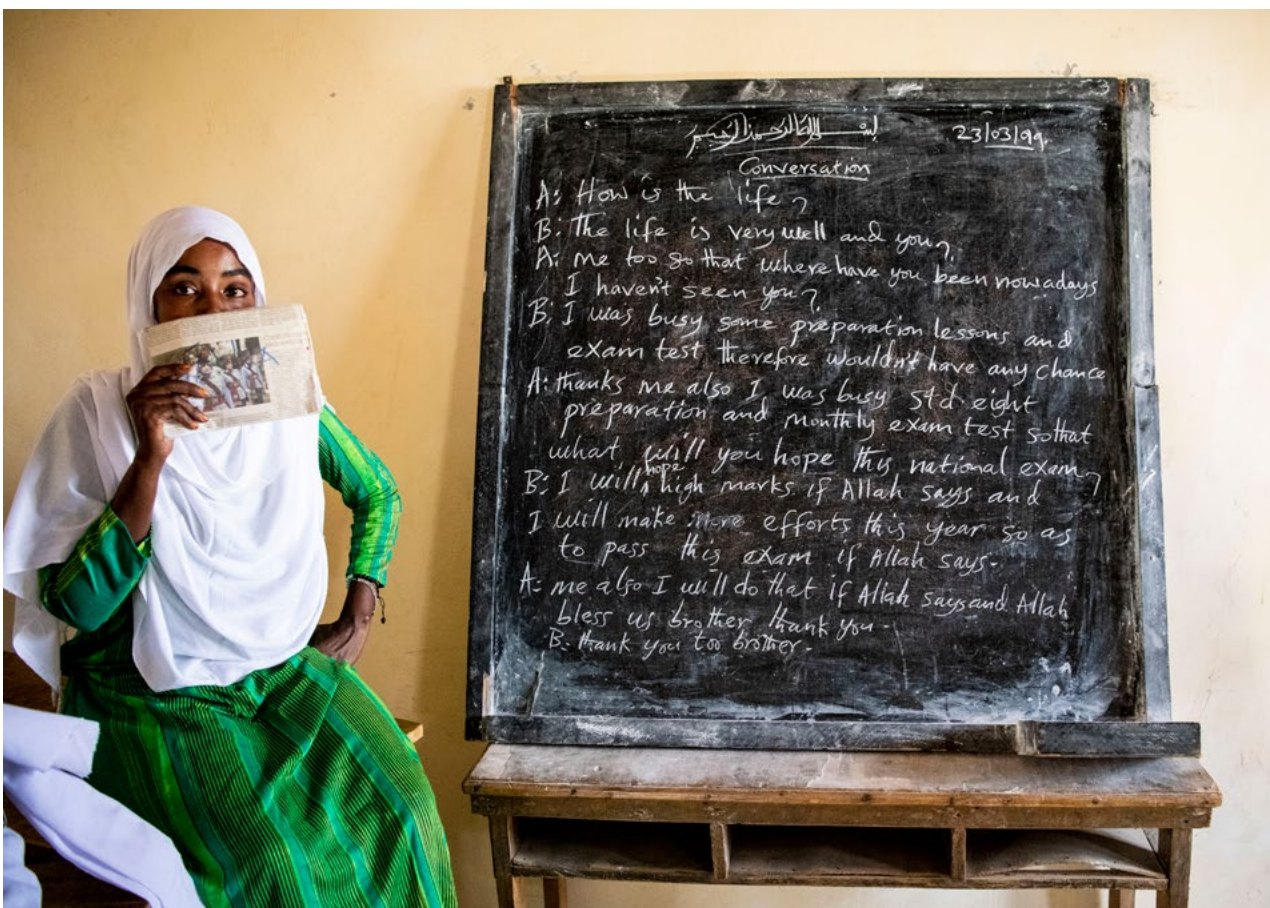 بسم الله الرحمن الرحيم
23/03/99.
Conversation
A: How is the life?
B: The life is very well and you?
A: me too so that where have you been nowadays
I haven't seen you?
B: I was busy some preparation lessons and
exam test therefore wouldn't have any chance
A: thanks me also I was busy std eight
preparation and monthly exam test sothat
what will you hope this national exam?
B: I will hope high marks if Allah says and
I will make more efforts this year so as
to pass this exam if Allah says.
A: me also I will do that if Allah says and Allah
bless us brother thank you.
B: thank you too brother.